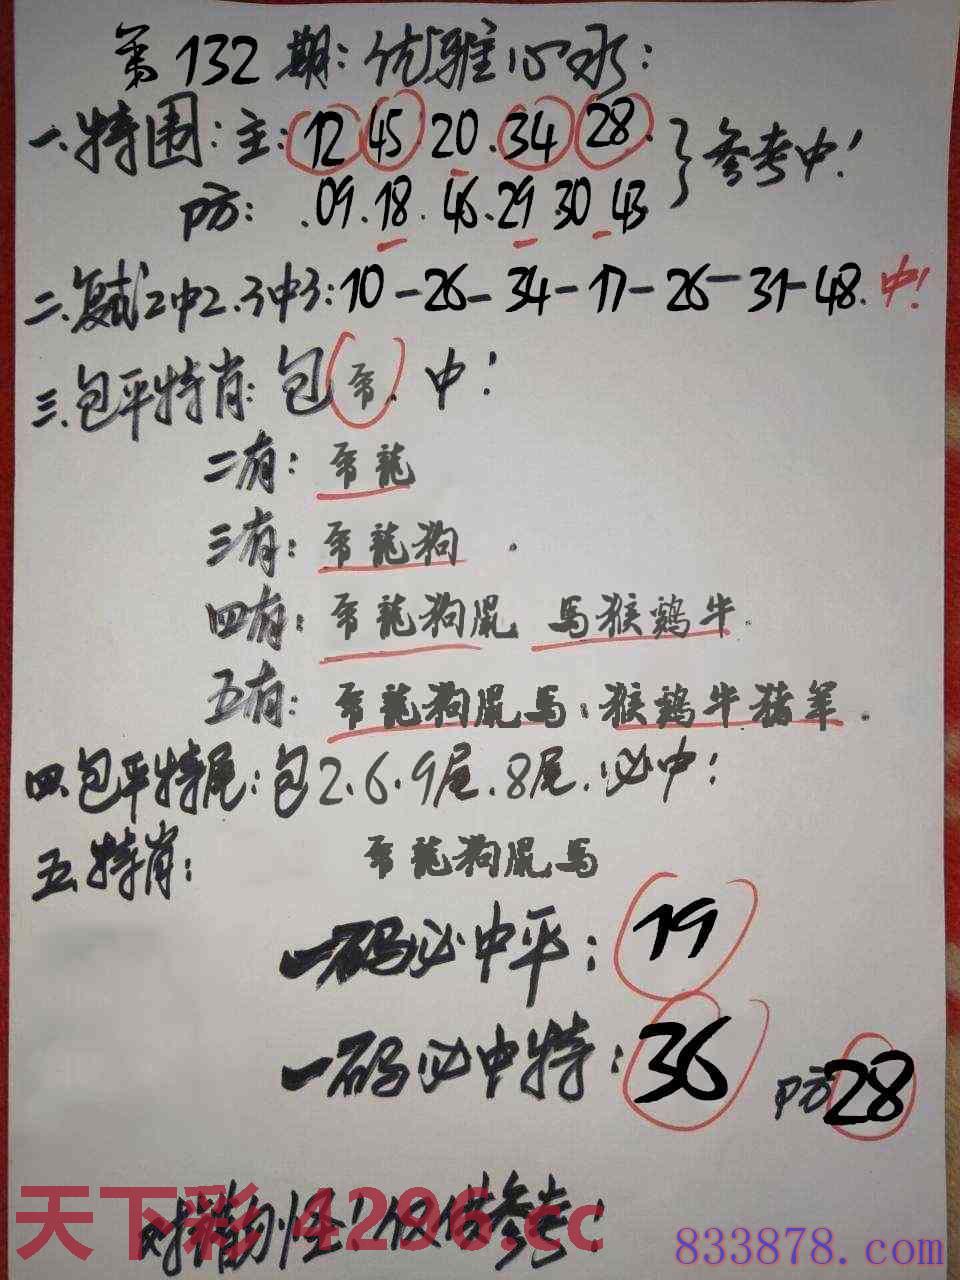 第132期:优雅心水:
一.特围:主:12 45.20.34 28.
}参考中!
防:.09.18.46.29 30 43
二.复试2中2.3中3:10-26-34-17-26-31-48.中!
三.包平特肖:包帝.中!
二有:帝龍
三有:帝龍狗.
四有:帝龍狗鼠 馬猴鷄牛.
五有:帝龍狗鼠馬.猴鷄牛猪羊.
四.包平特尾:包2.6.9尾.8尾.必中!
五.特肖: 帝龍狗鼠馬
一码必中平:19
一码必中特:36 防28
天下彩 4296.cc
对错勿怪!仅供参考!
833878.com